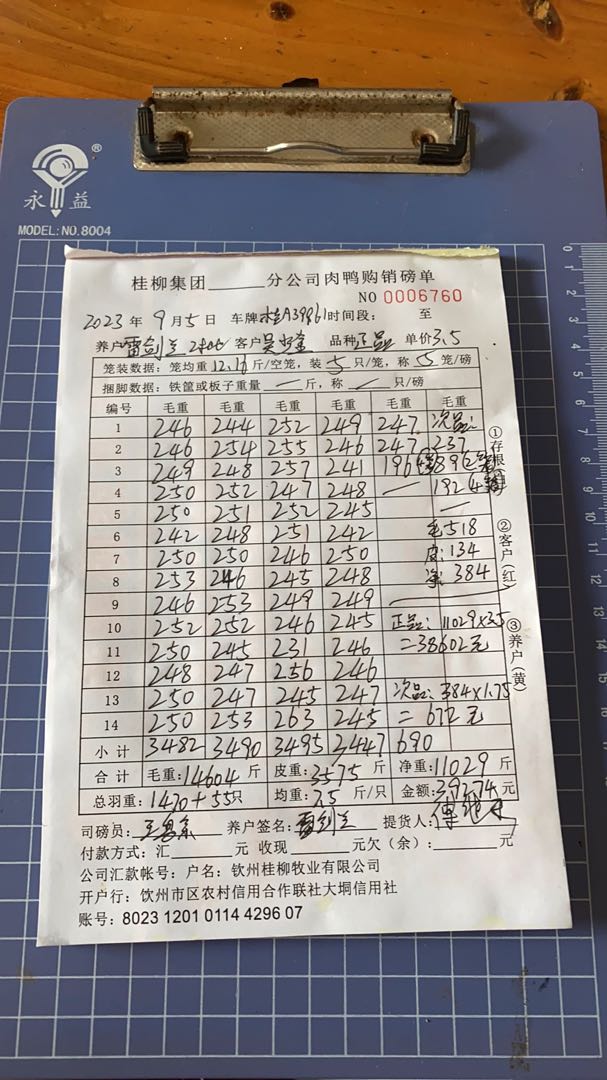 永益®
MODEL: NO.8004
桂柳集团______分公司肉鸭购销磅单
NO 0006760
2023年 9月5日 车牌桂A39861时间段: 至
养户雷剑兰 客户 品种正品 单价3.5
笼装数据: 笼均重12.16斤/空笼, 装5只/笼, 称5笼/磅
捆脚数据: 铁筐或板子重量 — 斤, 称 — 只/磅
编号 毛重 毛重 毛重 毛重 毛重 毛重
1 246 244 252 249 247 次品:
2 246 254 255 246 247 237
3 249 248 257 241 196
4 250 252 247 248 — 192
5 250 251 252 245 —
6 242 248 251 242 毛518
7 250 250 246 250 皮:134
8 253 246 245 248 净:384
9 246 253 249 249
10 252 252 246 245 正品: 11029×3.5
11 250 245 231 246 =38602元
12 248 247 256 246
13 250 247 245 247 次品:384×1.75
14 250 253 263 245 =672元
小计 3482 3490 3495 3447 690
合计 毛重:14604斤 皮重:3575斤 净重:11029斤
总羽重:1470+55只 均重:7.5斤/只 金额:39274元
司磅员: 养户签名:雷剑兰 提货人:
付款方式:汇______元 收现______元欠(余):______元
公司汇款帐号: 户名: 钦州桂柳牧业有限公司
开户行: 钦州市区农村信用合作联社大垌信用社
账号: 8023 1201 0114 4296 07
①存根(白)
②客户(红)
③养户(黄)
0 1 2 3 4 5 6 7 8 9